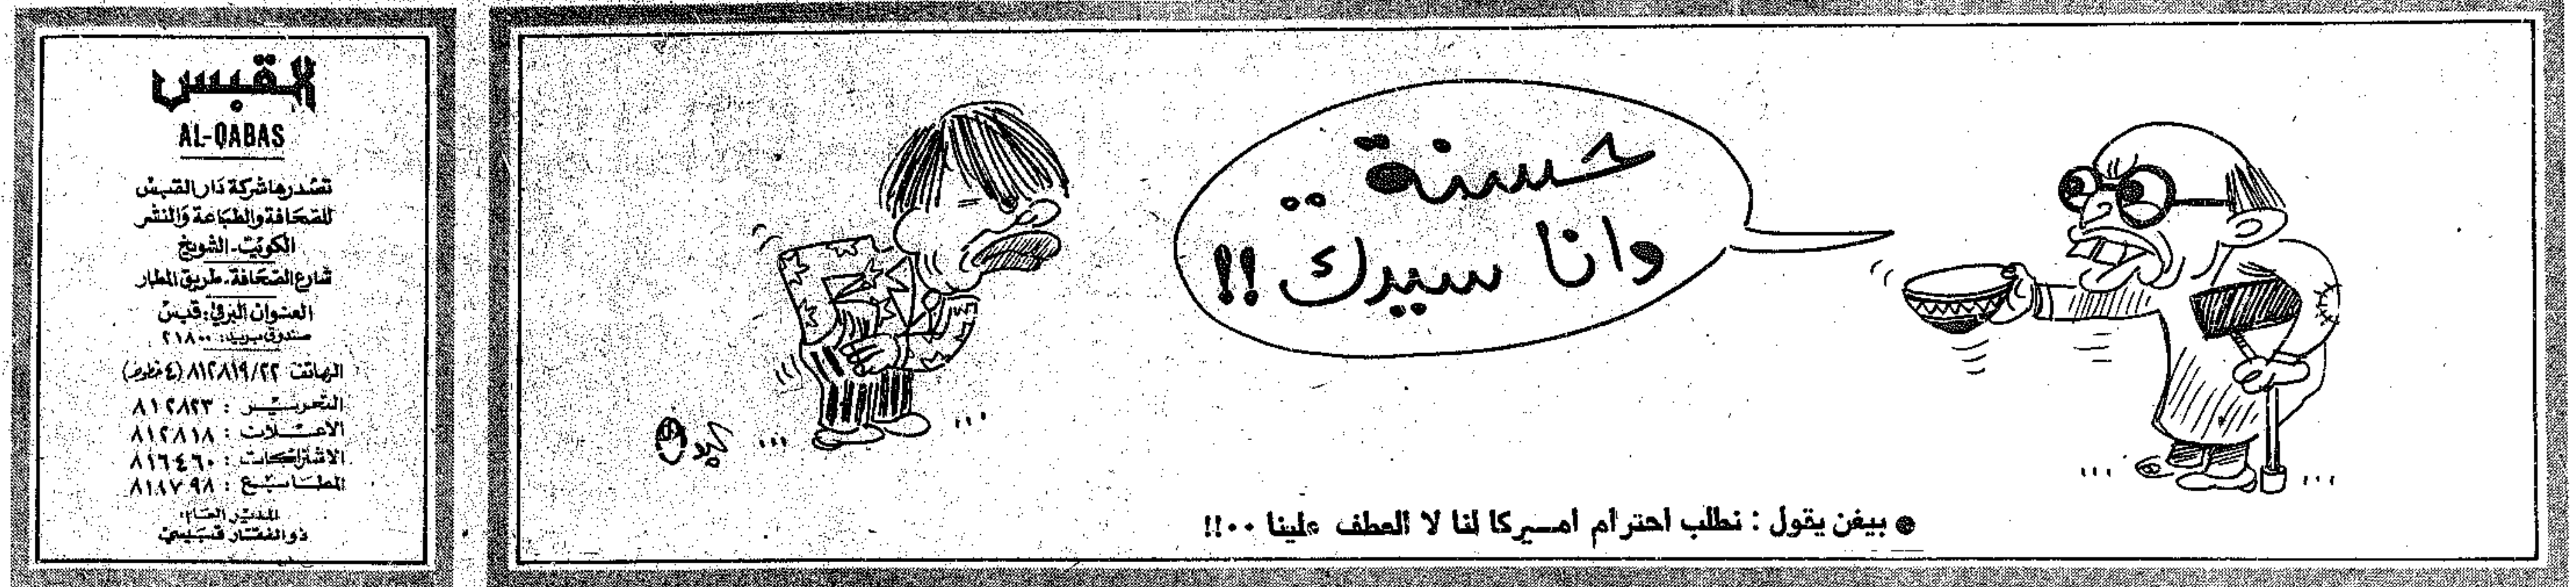 القبس
AL-QABAS
تصدرها شركة دار القبس
للصحافة والطباعة والنشر
الكويت - الشويخ
شارع الصحافة - طريق المطار
العنوان البرقي: قبس
صندوق بريد: ٢١٨٠٠
الهاتف ٨١٢٨١٩/٢٢ (٤ خطوط)
التحرير : ٨١٢٨٢٣
الاعلانات : ٨١٢٨١٨
الاشتراكات : ٨١٦٤٦٠
المطابع : ٨١٨٧٩٨
المدير العام:
ذو الفقار قبيسي
حسنة ..
وانا سيدك !!
● بيغن يقول : نطلب احترام اميركا لنا لا العطف علينا ٠٠!!